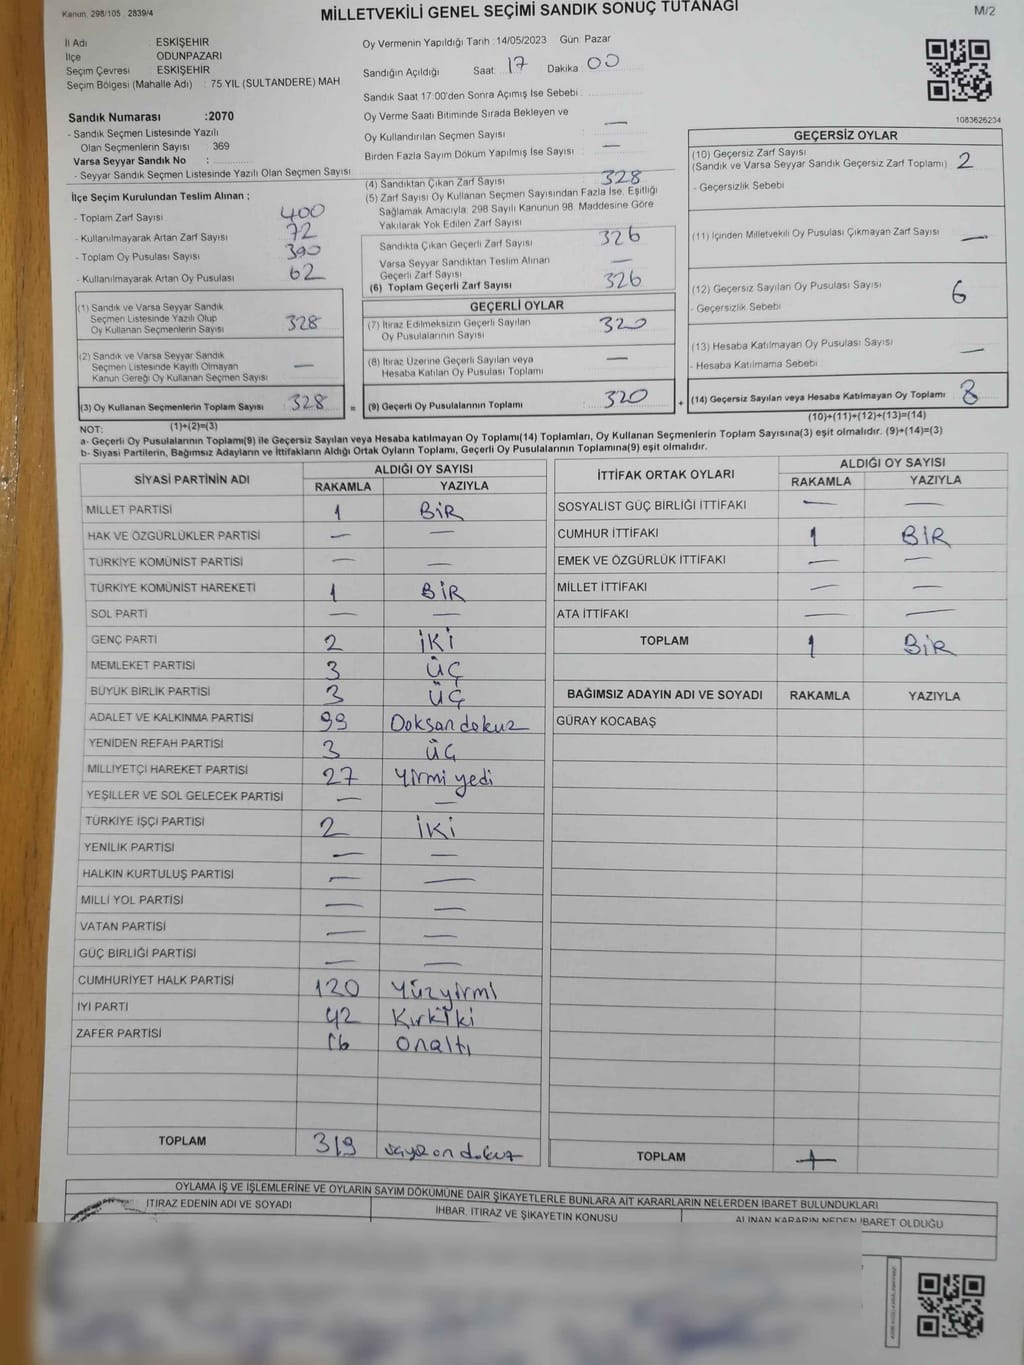 Kanun. 298/105 2839/4
MİLLETVEKİLİ GENEL SEÇİMİ SANDIK SONUÇ TUTANAĞI
M/2
İl Adı ESKİŞEHİR
İlçe ODUNPAZARI
Seçim Çevresi ESKİŞEHİR
Seçim Bölgesi (Mahalle Adı) : 75 YIL (SULTANDERE) MAH.
Oy Vermenin Yapıldığı Tarih :14/05/2023 Gün: Pazar
Sandığın Açıldığı Saat: 17 Dakika 00
Sandık Saat 17:00'den Sonra Açımış İse Sebebi :
Oy Verme Saati Bitiminde Sırada Bekleyen ve
Oy Kullandırılan Seçmen Sayısı : —
Birden Fazla Sayım Döküm Yapılmış İse Sayısı : —
1083626234
Sandık Numarası :2070
- Sandık Seçmen Listesinde Yazılı
Olan Seçmenlerin Sayısı : 369
Varsa Seyyar Sandık No :
- Seyyar Sandık Seçmen Listesinde Yazılı Olan Seçmen Sayısı
İlçe Seçim Kurulundan Teslim Alınan ;
- Toplam Zarf Sayısı 400
- Kullanılmayarak Artan Zarf Sayısı 72
- Toplam Oy Pusulası Sayısı 390
- Kullanılmayarak Artan Oy Pusulası 62
(1) Sandık ve Varsa Seyyar Sandık
Seçmen Listesinde Yazılı Olup
Oy Kullanan Seçmenlerin Sayısı 328
(2) Sandık ve Varsa Seyyar Sandık
Seçmen Listesinde Kayıtlı Olmayan
Kanun Gereği Oy Kullanan Seçmen Sayısı —
(3) Oy Kullanan Seçmenlerin Toplam Sayısı 328 =
(1)+(2)=(3)
(4) Sandıktan Çıkan Zarf Sayısı 328
(5) Zarf Sayısı Oy Kullanan Seçmen Sayısından Fazla İse, Eşitliği
Sağlamak Amacıyla, 298 Sayılı Kanunun 98. Maddesine Göre
Yakılarak Yok Edilen Zarf Sayısı
Sandıkta Çıkan Geçerli Zarf Sayısı 326
Varsa Seyyar Sandıktan Teslim Alınan
Geçerli Zarf Sayısı —
(6) Toplam Geçerli Zarf Sayısı 326
GEÇERLİ OYLAR
(7) İtiraz Edilmeksizin Geçerli Sayılan
Oy Pusulalarının Sayısı 320
(8) İtiraz Üzerine Geçerli Sayılan veya
Hesaba Katılan Oy Pusulası Toplamı —
(9) Geçerli Oy Pusulalarının Toplamı 320 +
GEÇERSİZ OYLAR
(10) Geçersiz Zarf Sayısı
(Sandık ve Varsa Seyyar Sandık Geçersiz Zarf Toplamı) 2
- Geçersizlik Sebebi
(11) İçinden Milletvekili Oy Pusulası Çıkmayan Zarf Sayısı —
(12) Geçersiz Sayılan Oy Pusulası Sayısı 6
- Geçersizlik Sebebi
(13) Hesaba Katılmayan Oy Pusulası Sayısı —
- Hesaba Katılmama Sebebi
(14) Geçersiz Sayılan veya Hesaba Katılmayan Oy Toplamı 8
(10)+(11)+(12)+(13)=(14)
NOT:
a- Geçerli Oy Pusulalarının Toplamı(9) ile Geçersiz Sayılan veya Hesaba katılmayan Oy Toplamı(14) Toplamları, Oy Kullanan Seçmenlerin Toplam Sayısına(3) eşit olmalıdır. (9)+(14)=(3)
b- Siyasi Partilerin, Bağımsız Adayların ve İttifakların Aldığı Ortak Oyların Toplamı, Geçerli Oy Pusulalarının Toplamına(9) eşit olmalıdır.
SİYASİ PARTİNİN ADI ALDIĞI OY SAYISI
RAKAMLA YAZIYLA
MİLLET PARTİSİ 1 BİR
HAK VE ÖZGÜRLÜKLER PARTİSİ — —
TÜRKİYE KOMÜNİST PARTİSİ — —
TÜRKİYE KOMÜNİST HAREKETİ 1 BİR
SOL PARTİ — —
GENÇ PARTİ 2 İKİ
MEMLEKET PARTİSİ 3 ÜÇ
BÜYÜK BİRLİK PARTİSİ 3 ÜÇ
ADALET VE KALKINMA PARTİSİ 99 Doksan dokuz
YENİDEN REFAH PARTİSİ 3 ÜÇ
MİLLİYETÇİ HAREKET PARTİSİ 27 Yirmi yedi
YEŞİLLER VE SOL GELECEK PARTİSİ — —
TÜRKİYE İŞÇİ PARTİSİ 2 İKİ
YENİLİK PARTİSİ — —
HALKIN KURTULUŞ PARTİSİ — —
MİLLİ YOL PARTİSİ — —
VATAN PARTİSİ — —
GÜÇ BİRLİĞİ PARTİSİ — —
CUMHURİYET HALK PARTİSİ 120 Yüzyirmi
İYİ PARTİ 42 Kırkİki
ZAFER PARTİSİ 16 Onaltı
TOPLAM 319
İTTİFAK ORTAK OYLARI ALDIĞI OY SAYISI
RAKAMLA YAZIYLA
SOSYALİST GÜÇ BİRLİĞİ İTTİFAKI — —
CUMHUR İTTİFAKI 1 BİR
EMEK VE ÖZGÜRLÜK İTTİFAKI — —
MİLLET İTTİFAKI — —
ATA İTTİFAKI — —
TOPLAM 1 BİR
BAĞIMSIZ ADAYIN ADI VE SOYADI RAKAMLA YAZIYLA
GÜRAY KOCABAŞ
TOPLAM
OYLAMA İŞ VE İŞLEMLERİNE VE OYLARIN SAYIM DÖKÜMÜNE DAİR ŞİKAYETLERLE BUNLARA AİT KARARLARIN NELERDEN İBARET BULUNDUKLARI
İTİRAZ EDENİN ADI VE SOYADI İHBAR, İTİRAZ VE ŞİKAYETİN KONUSU ALINAN KARARIN NEDEN İBARET OLDUĞU